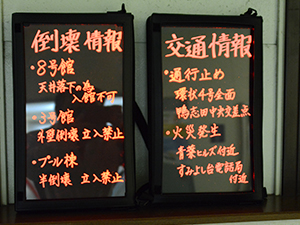 倒壊情報
・8号館
天井落下の為
入館不可
・3号館
外壁倒壊 立入禁止
・プール棟
半倒壊 立入禁止
交通情報
・通行止め
環状4号全面
鴨志田中央交差点
・火災発生
青葉ヒルズ付近
すみよし台電話局
付近